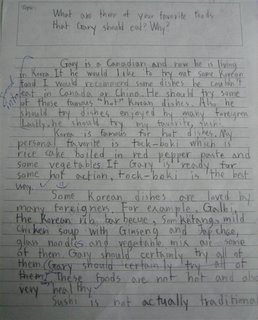 Topic:
What are three of your favorite foods
that Gary should eat? Why?
Gary is a Canadian and now he is living
in Korea. If he would like to try out some Korean
food I would recommend some dishes he couldn't
eat in Canada or China. He should try some
of those famous "hot" Korean dishes. Also he
should try dishes enjoyed by many foreigners
Lastly, he should try my favorite, sushi.
Korea is famous for hot dishes. My
personal favorite is tock-boki which is
rice cake boiled in red pepper paste and
some vegetables. If Gary is ready for
some hot action, tock-boki is the best
way.
Some Korean dishes are loved by
many foreigners. For example, Galbi,
the Korean rib barbecue, Samketang, mild
chicken soup with Ginseng and Japchae,
glass noodles and vegetable mix are some
of them. Gary should certainly try all of
them. Gary should certainly try all of
them. These foods are not hot and also
very healthy.
Sushi is not actually traditional